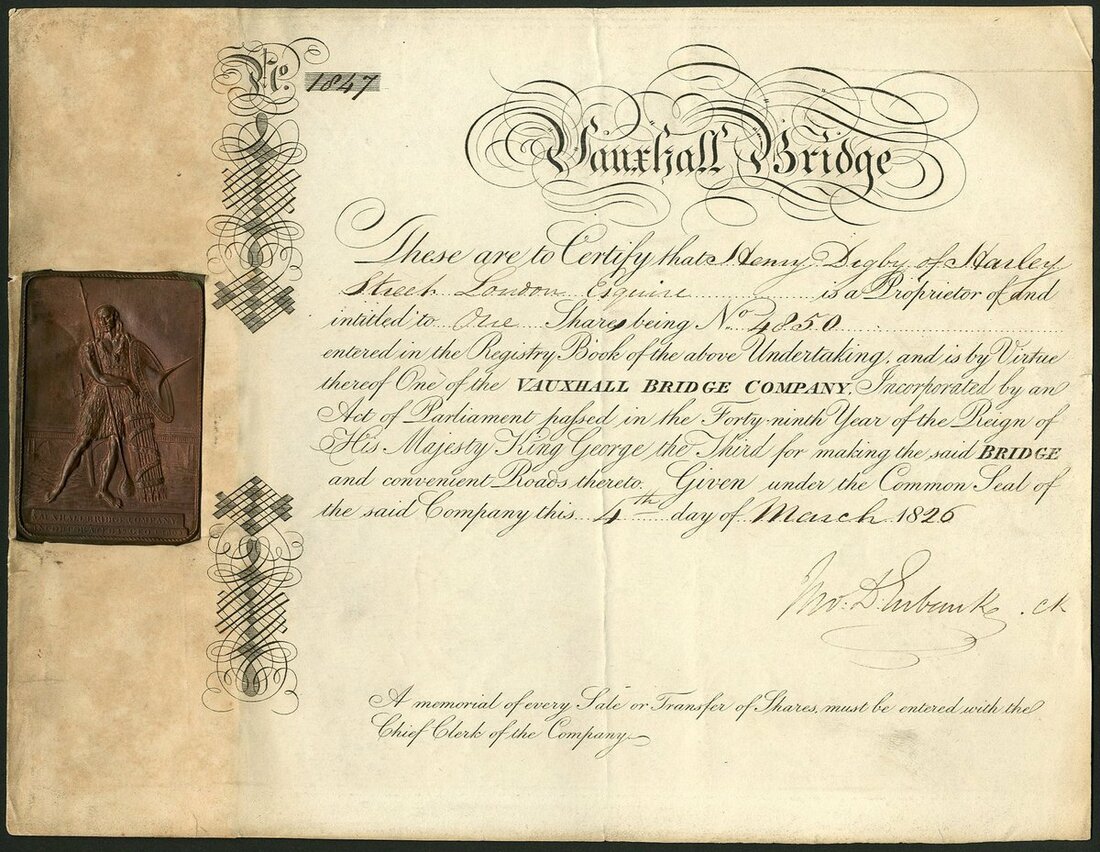 No. 1847
Vauxhall Bridge
These are to Certify that Henry Digby of Harley
Street London Esquire is a Proprietor of and
intitled to One Share, being No. 4850
entered in the Registry Book of the above Undertaking, and is by Virtue
thereof One of the VAUXHALL BRIDGE COMPANY, Incorporated by an
Act of Parliament passed in the Forty-ninth Year of the Reign of
His Majesty King George the Third for making the said BRIDGE
and convenient Roads thereto. Given under the Common Seal of
the said Company this 4th day of March 1826
Jno. D. Eubank . ck
A memorial of every Sale or Transfer of Shares, must be entered with the
Chief Clerk of the Company.
VAUXHALL BRIDGE COMPANY